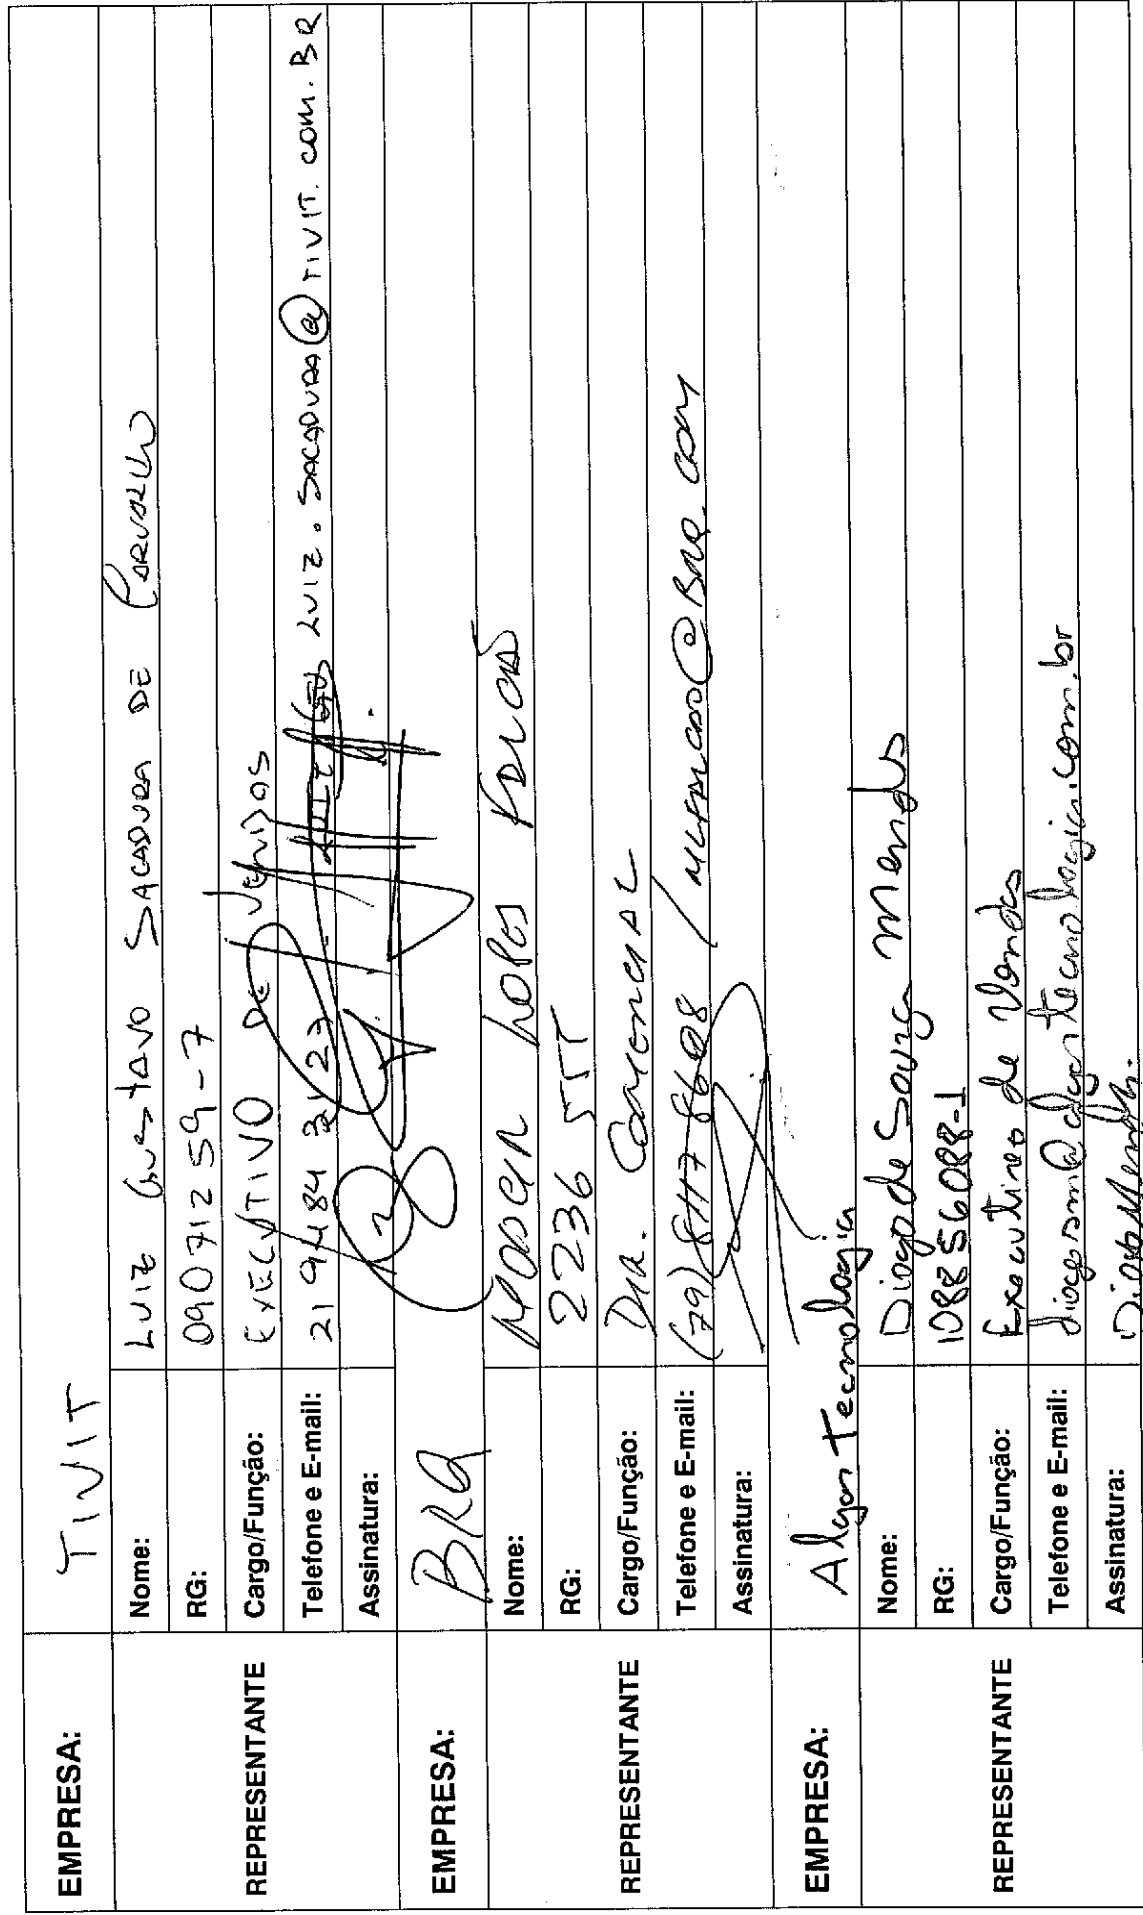 EMPRESA: TIVIT
REPRESENTANTE
Nome: LUIZ GUSTAVO SACADURA DE CARVALHO
RG: 09071259-7
Cargo/Função: EXECUTIVO DE VENDAS
Telefone e E-mail: 21 9484 3127 LUIZ.SACADURA@TIVIT.COM.BR
Assinatura:
EMPRESA: BRQ
REPRESENTANTE
Nome: Lopes
RG: 2236 555
Cargo/Função: Dir. Comercial
Telefone e E-mail: (79) 8117 8608 / @BRQ.COM
Assinatura:
EMPRESA: Algar Tecnologia
REPRESENTANTE
Nome: Diogo de Souza Mendes
RG: 108856088-1
Cargo/Função: Executivo de Vendas
Telefone e E-mail: diogosm@algartecnologia.com.br
Assinatura: Diogo Mendes.